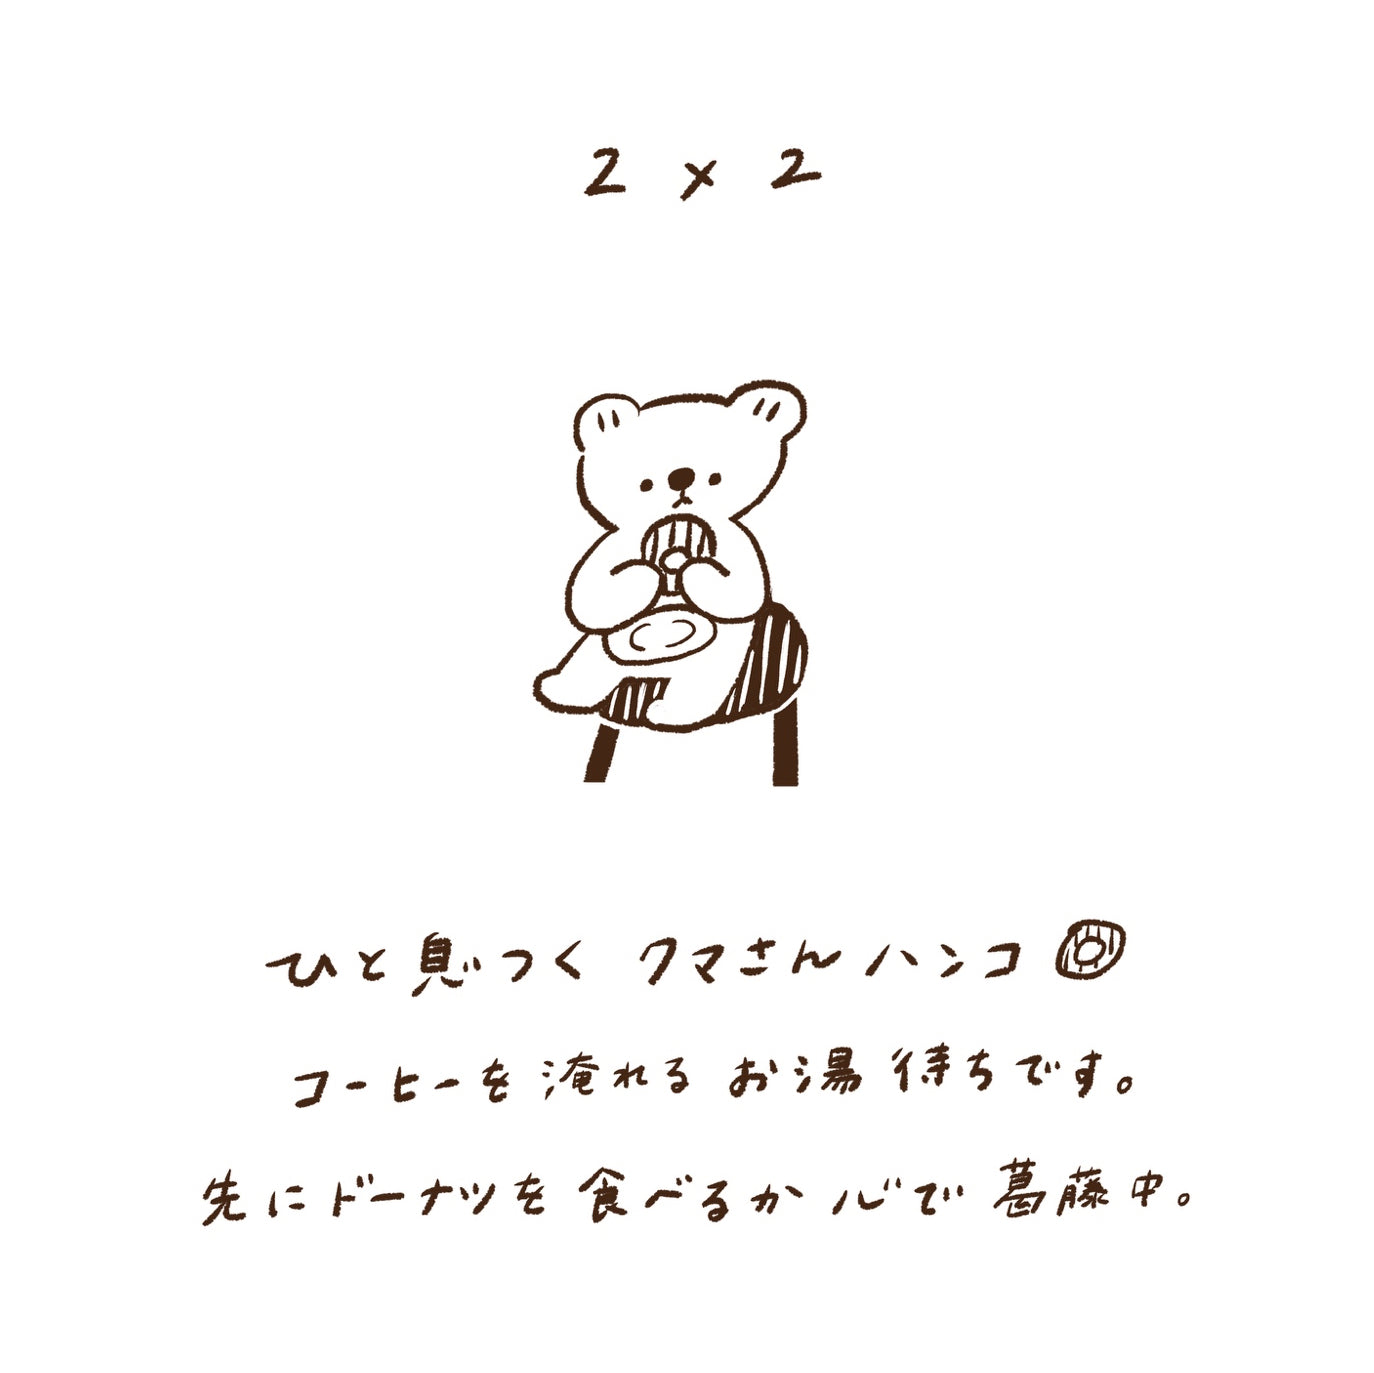 2 x 2
ひと息つく クマさんハンコ
コーヒーを淹れるお湯待ちです。
先にドーナツを食べるか心で葛藤中。